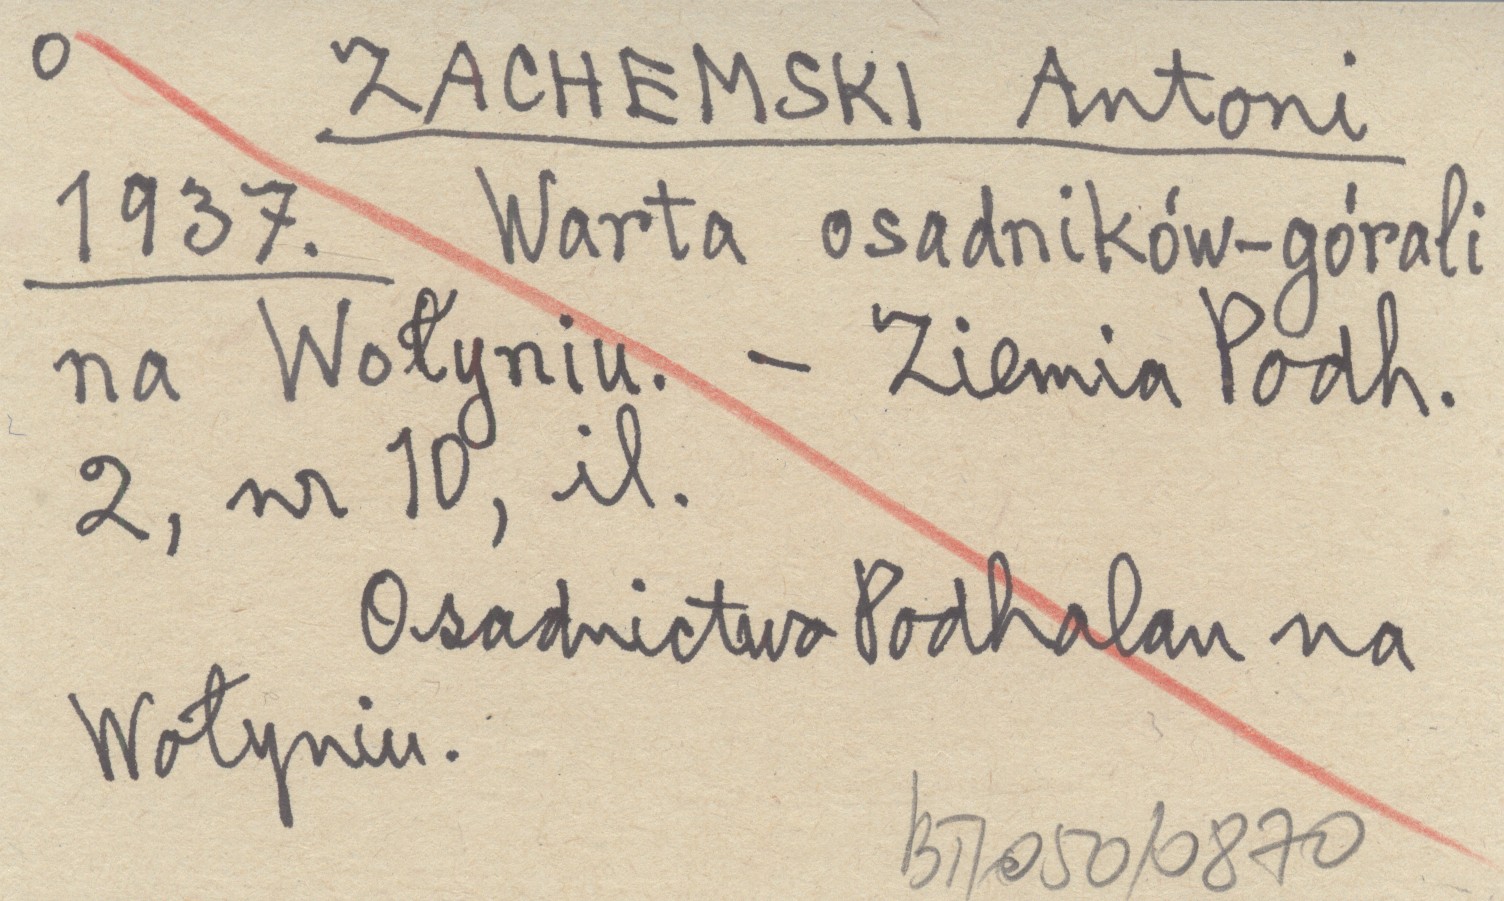 o ZACHEMSKI Antoni
1937. Warta osadników-górali
na Wołyniu. - Ziemia Podh.
2, nr 10, il.
Osadnictwo Podhalan na
Wołyniu.
BTI/050/0870